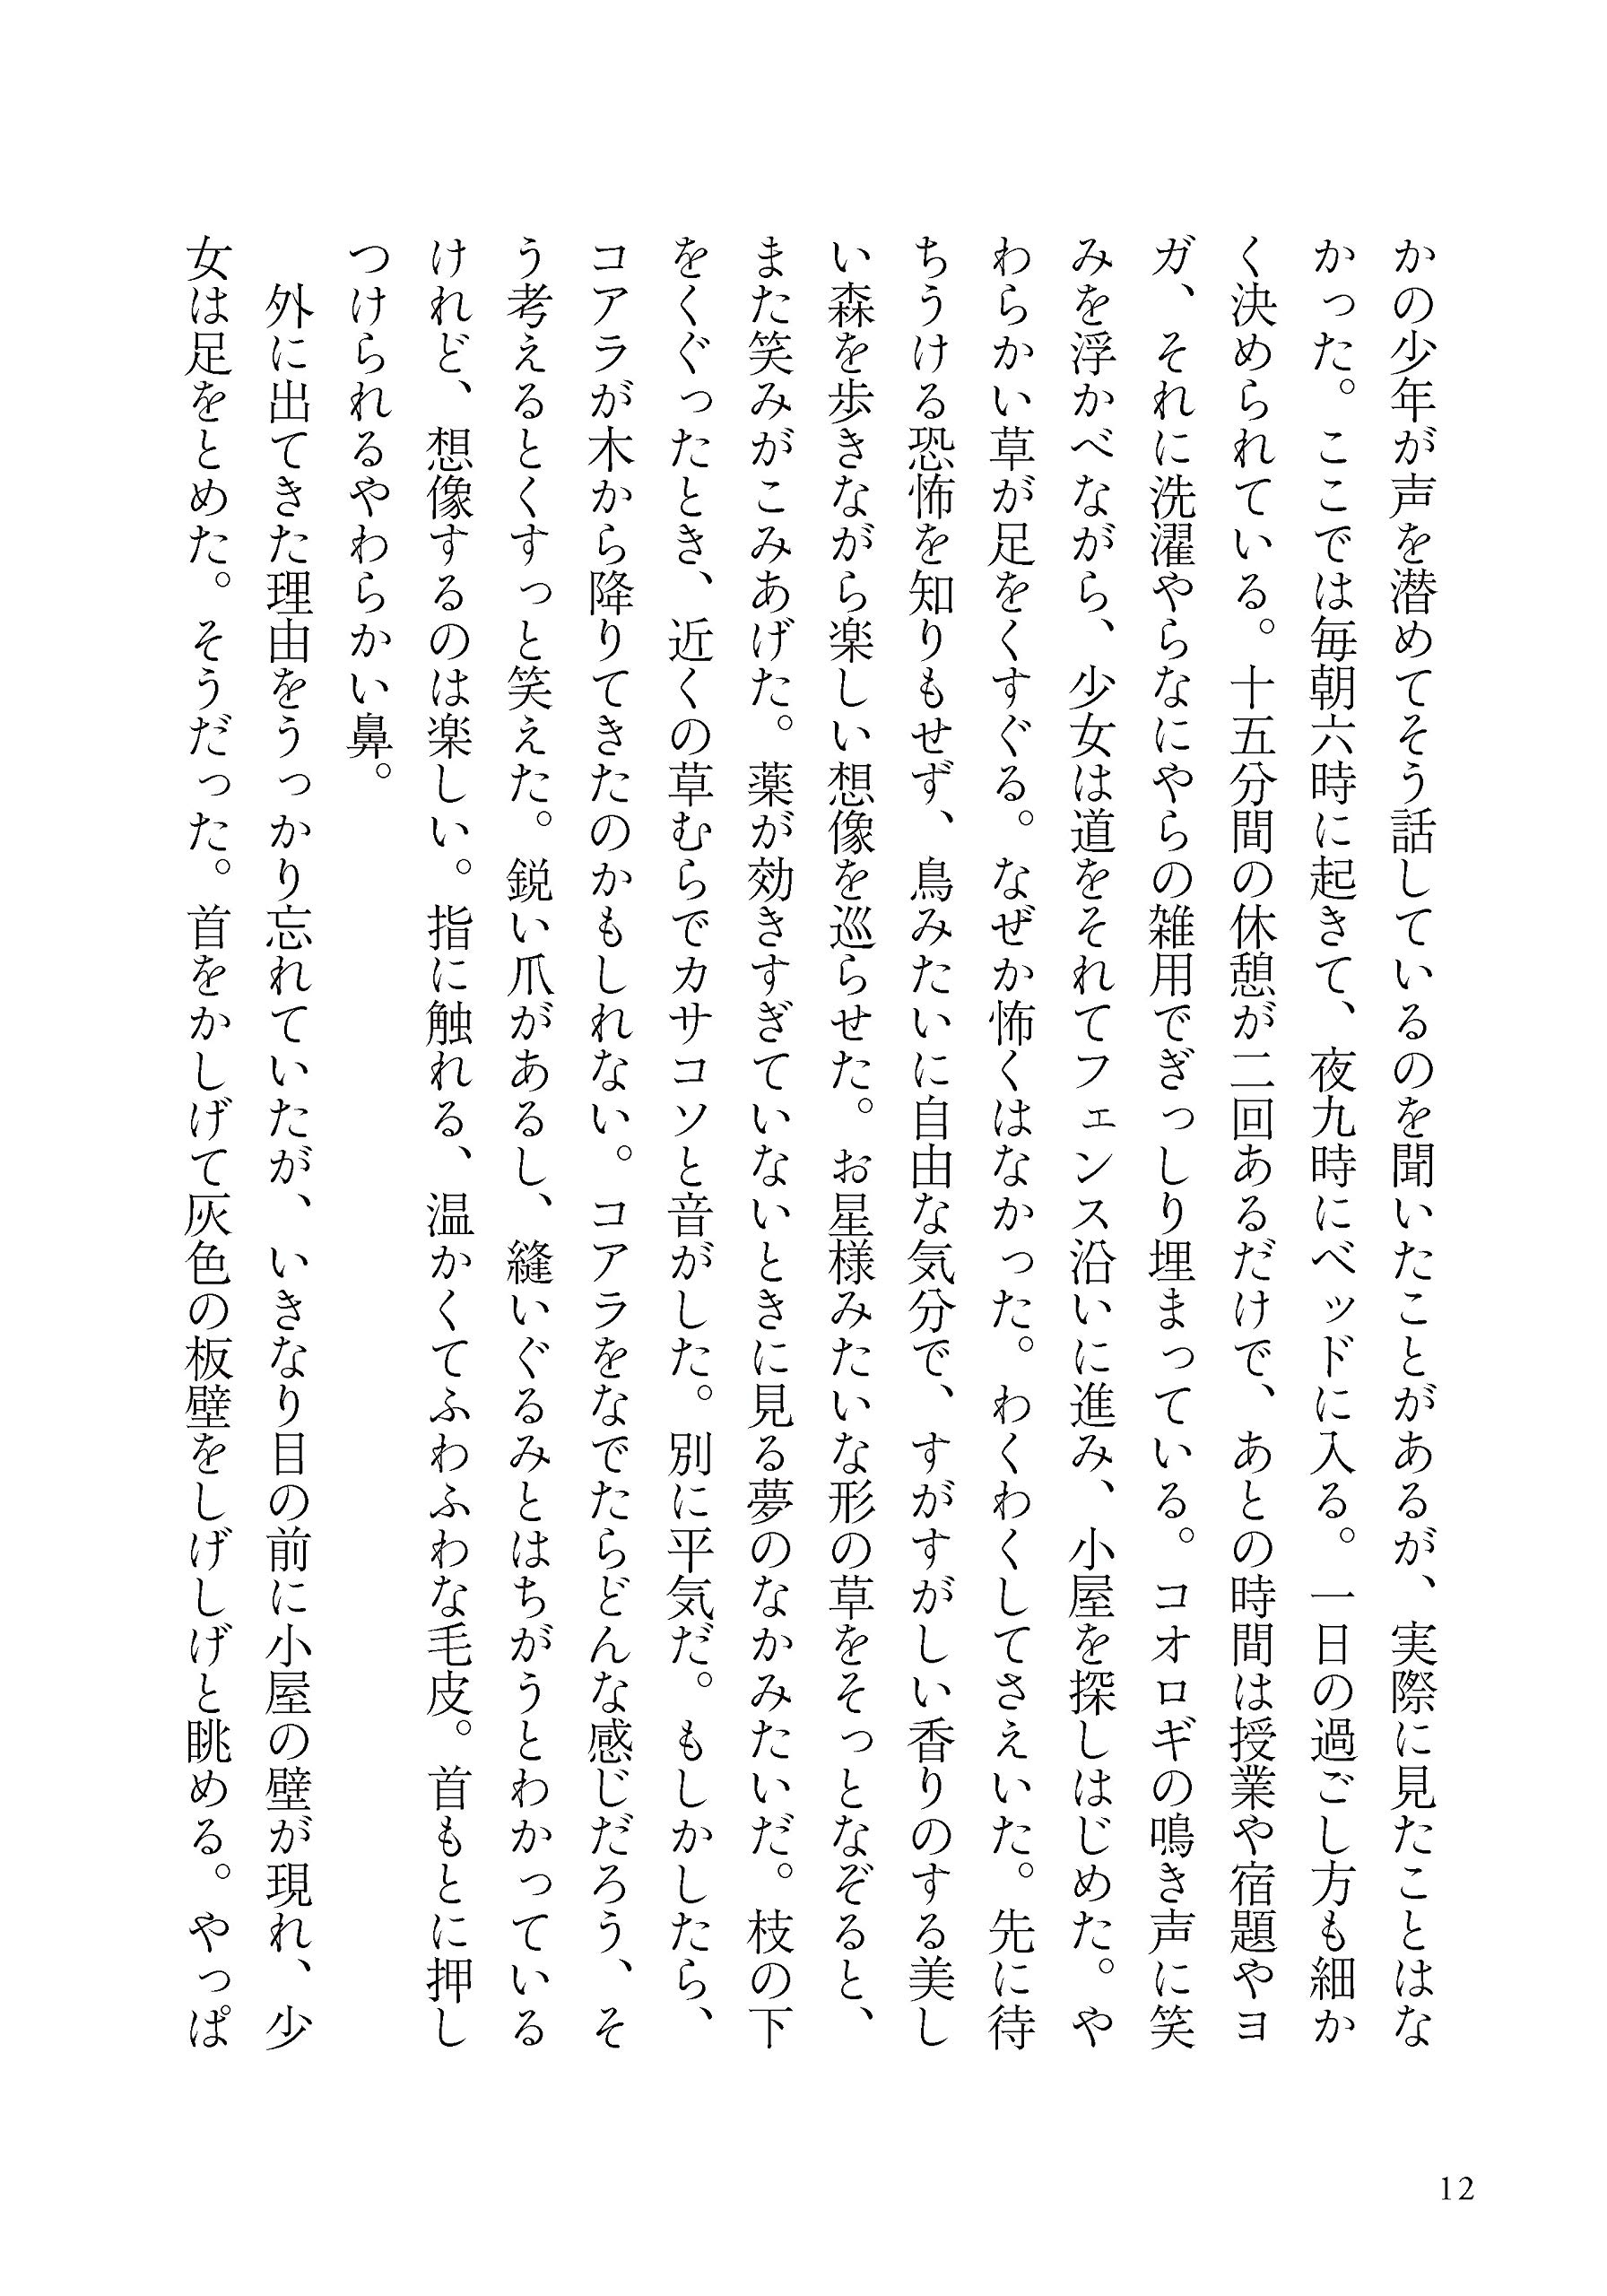 かの少年が声を潜めてそう話しているのを聞いたことがあるが、実際に見たことはな
かった。ここでは毎朝六時に起きて、夜九時にベッドに入る。一日の過ごし方も細か
く決められている。十五分間の休憩が二回あるだけで、あとの時間は授業や宿題やヨ
ガ、それに洗濯やらなにやらの雑用でぎっしり埋まっている。コオロギの鳴き声に笑
みを浮かべながら、少女は道をそれてフェンス沿いに進み、小屋を探しはじめた。や
わらかい草が足をくすぐる。なぜか怖くはなかった。わくわくしてさえいた。先に待
ちうける恐怖を知りもせず、鳥みたいに自由な気分で、すがすがしい香りのする美し
い森を歩きながら楽しい想像を巡らせた。お星様みたいな形の草をそっとなぞると、
また笑みがこみあげた。薬が効きすぎていないときに見る夢のなかみたいだ。枝の下
をくぐったとき、近くの草むらでカサコソと音がした。別に平気だ。もしかしたら、
コアラが木から降りてきたのかもしれない。コアラをなでたらどんな感じだろう、そ
う考えるとくすっと笑えた。鋭い爪があるし、縫いぐるみとはちがうとわかっている
けれど、想像するのは楽しい。指に触れる、温かくてふわふわな毛皮。首もとに押し
つけられるやわらかい鼻。
　外に出てきた理由をうっかり忘れていたが、いきなり目の前に小屋の壁が現れ、少
女は足をとめた。そうだった。首をかしげて灰色の板壁をしげしげと眺める。やっぱ
12